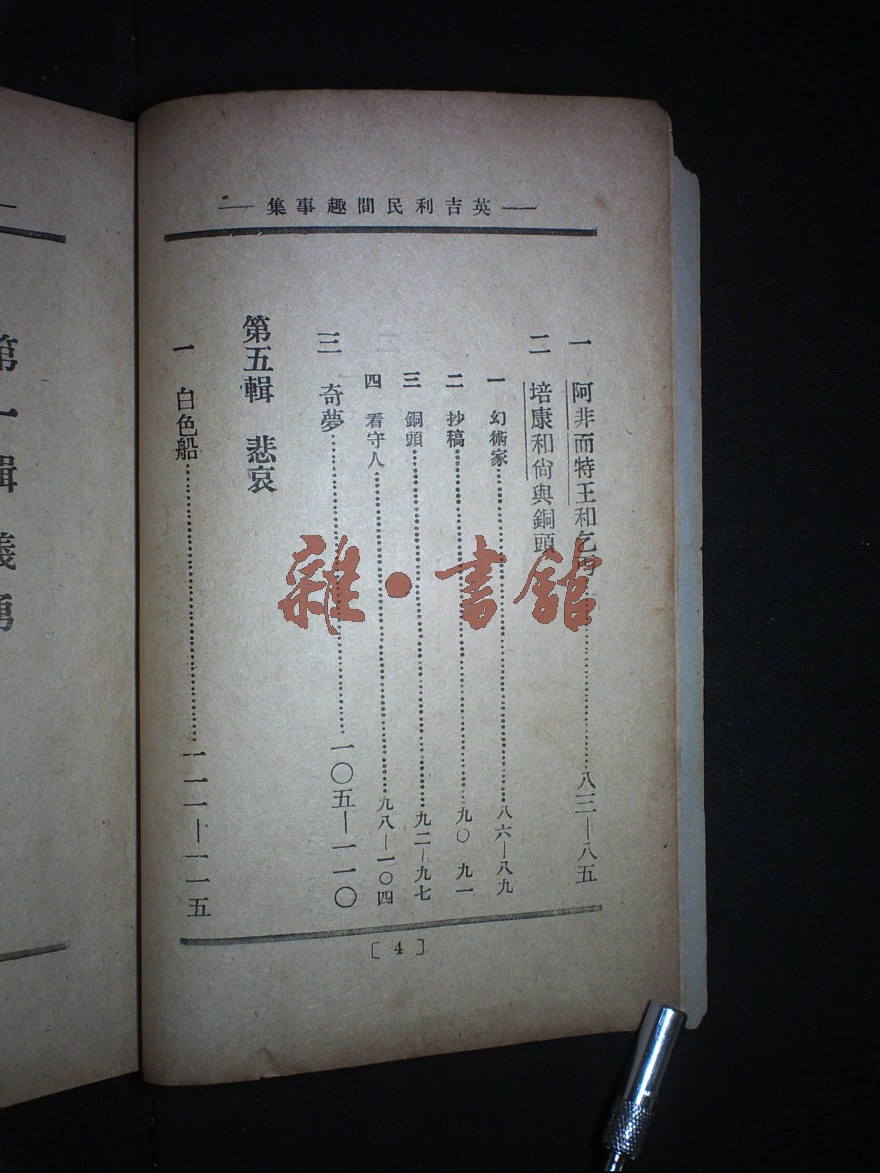 英吉利民間趣事集
一 阿非而特王和乞丐……八三—八五
二 培康和尙與銅頭
一 幻術家……八六—八九
二 抄稿……九〇 九一
三 銅頭……九二—九七
四 看守人……九八—一〇四
三 奇夢……一〇五—一一〇
第五輯 悲哀
一 白色船……一一一—一一五
〔4〕
第一輯
雜·書館